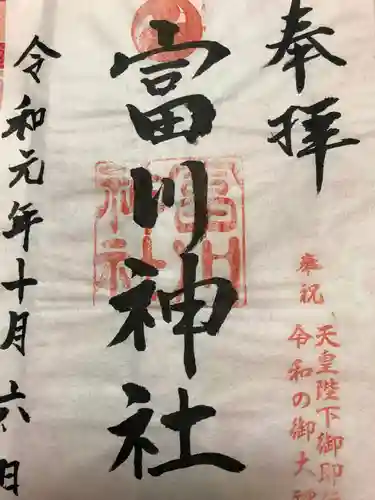 奉拝
奉祝
天皇陛下御即
令和の御大
富川神社
富川
神社
令和元年十月六日